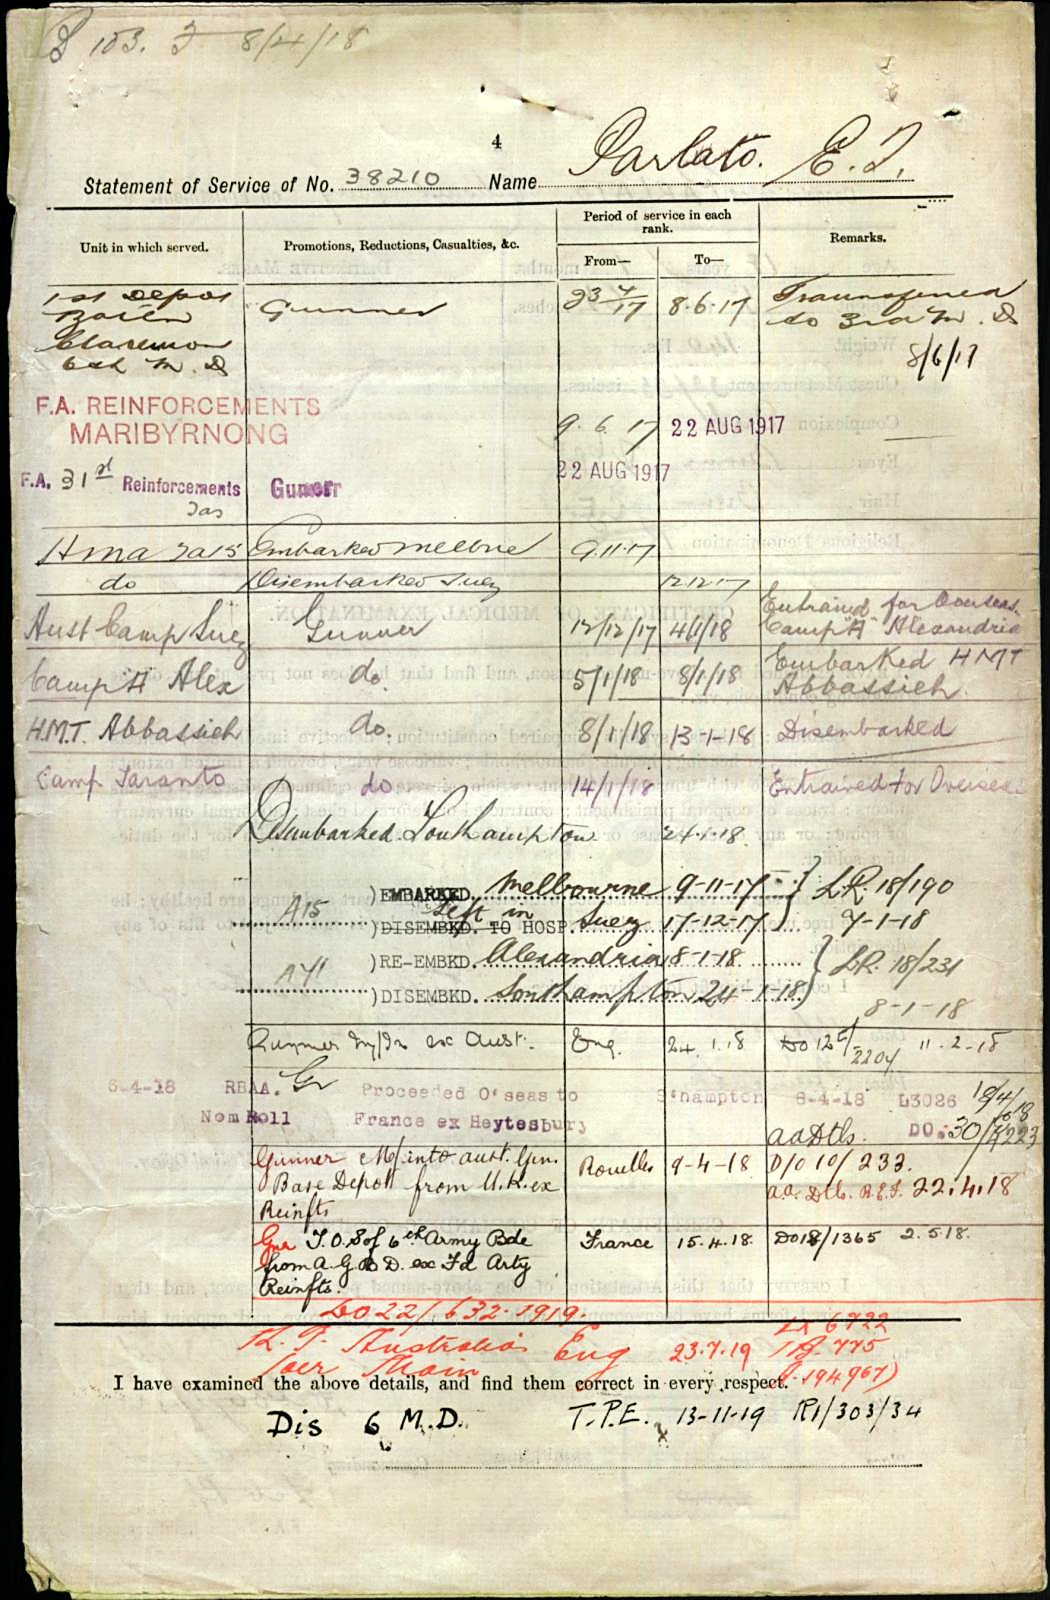 103. 8/4/18
4
Statement of Service of No. 38210 Name Parlato. E. J.
Unit in which served. Promotions, Reductions, Casualties, &c. Period of service in each rank. Remarks.
From— To—
1st Depot Gunner 23 4/17 8.6.17 Transferred
to 3rd M. D
Claremon
6th M. D 8/6/17
F.A. REINFORCEMENTS
MARIBYRNONG 9. 6. 17 22 AUG 1917
22 AUG 1917
F.A. 31st Reinforcements Gunner
Tas
Hma Embarked Melbne 9.11.17
do Disembarked Suez 12.12.17
Entrained for Overseas
Aust Camp Suez Gunner 12/12/17 4/1/18 Camp "A" Alexandria
Camp A Alex do. 5/1/18 8/1/18 Embarked HMT
Abbassieh.
H.M.T. Abbassieh do. 8/1/18 13-1-18 Disembarked
Camp Taranto do 14/1/18 Entrained for Overseas
Disembarked Southampton 24.1.18.
A15 )EMBARKED. Melbourne 9-11-17 L.R. 18/190
Left in
)DISEMBKD. TO HOSP. Suez 17-12-17 7-1-18
A41 )RE-EMBKD. Alexandria 8-1-18 L.R. 18/231
)DISEMBKD. Southampton 24-1-18 8-1-18
Gunner M/In ex Aust. Eng. 24.1.18 DO 12 2204 11.2.18
6-4-18 RBAA. Gr Proceeded O'seas to S'hampton 6-4-18 L3026 19/4/18
Nom Roll France ex Heytesbury DO. 30/
aaDtls.
Gunner M/into aust. Gen. Rouelles 9-4-18 D/o 10/233.
Base Depot from U.K. ex aa. Dtls. A.E.F. 22.4.18
Reinfts
Gnr T.O.S of 6th Army Bde France 15.4.18. DO18/1365 2.5.18.
from A.G.B.D. ex Fd Arty
Reinfts.
DO 22/632.1919.
6722
R. T. Australia Eng 23.7.19 775
per Main 194967)
I have examined the above details, and find them correct in every respect.
Dis 6 M.D. T.P.E. 13-11-19 R1/303/34